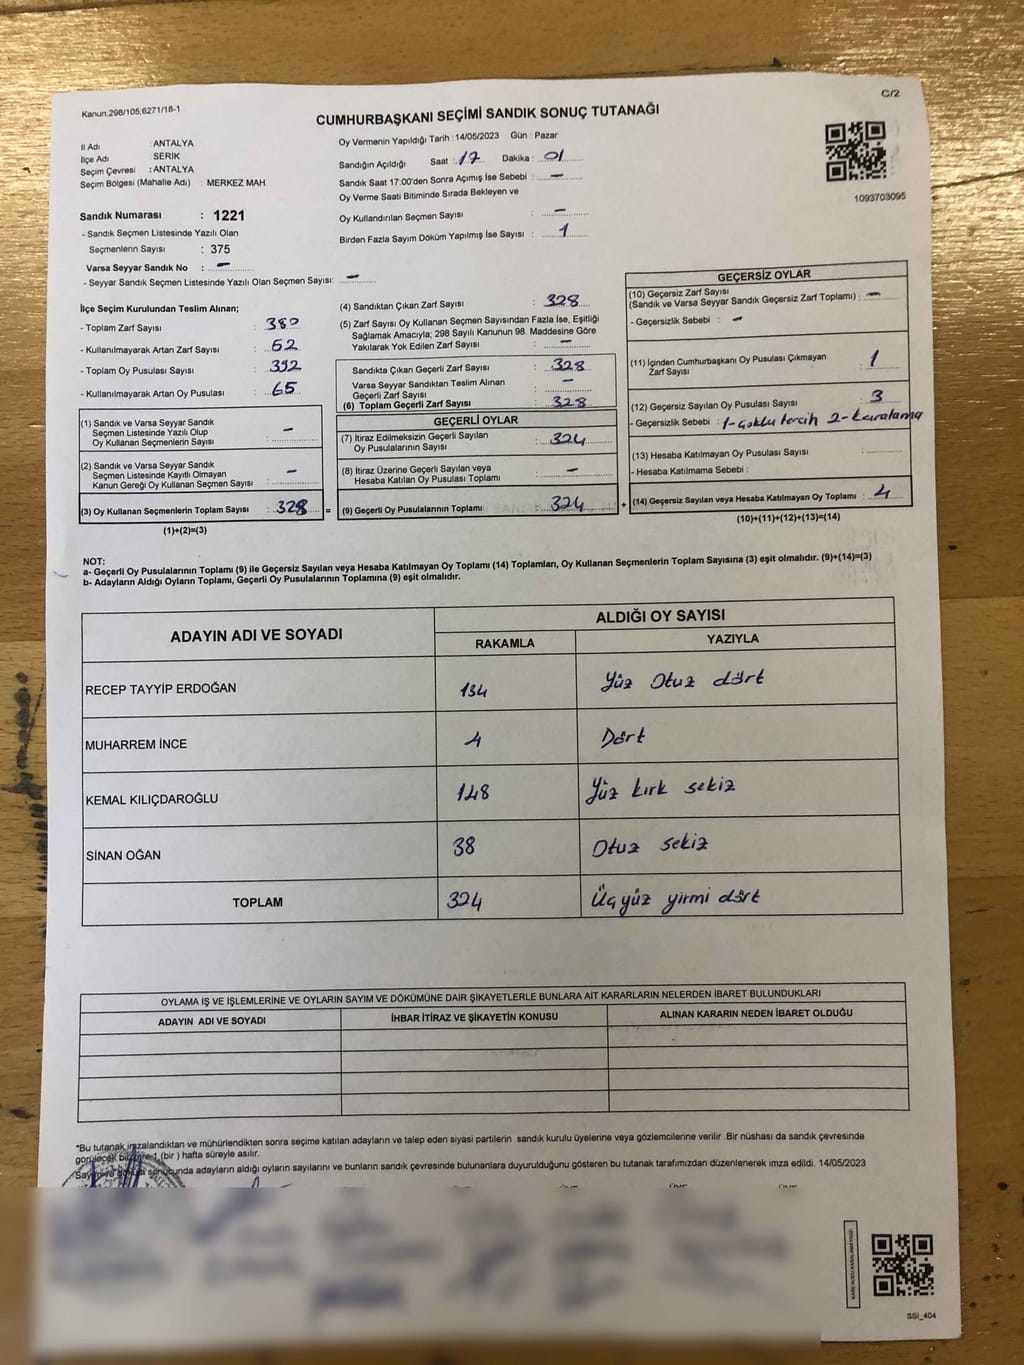 Kanun:298/105;6271/18-1
C/2
CUMHURBAŞKANI SEÇİMİ SANDIK SONUÇ TUTANAĞI
İl Adı : ANTALYA
İlçe Adı : SERİK
Seçim Çevresi : ANTALYA
Seçim Bölgesi (Mahalle Adı) : MERKEZ MAH.
Oy Vermenin Yapıldığı Tarih : 14/05/2023 Gün : Pazar
Sandığın Açıldığı Saat : 17 Dakika : 01
Sandık Saat 17:00'den Sonra Açımış İse Sebebi : –
Oy Verme Saati Bitiminde Sırada Bekleyen ve
Oy Kullandırılan Seçmen Sayısı : –
Birden Fazla Sayım Döküm Yapılmış İse Sayısı : 1
1093703095
Sandık Numarası : 1221
- Sandık Seçmen Listesinde Yazılı Olan
Seçmenlerin Sayısı : 375
Varsa Seyyar Sandık No : –
- Seyyar Sandık Seçmen Listesinde Yazılı Olan Seçmen Sayısı: –
İlçe Seçim Kurulundan Teslim Alınan;
- Toplam Zarf Sayısı : 380
- Kullanılmayarak Artan Zarf Sayısı : 52
- Toplam Oy Pusulası Sayısı : 392
- Kullanılmayarak Artan Oy Pusulası : 65
(1) Sandık ve Varsa Seyyar Sandık
Seçmen Listesinde Yazılı Olup
Oy Kullanan Seçmenlerin Sayısı : –
(2) Sandık ve Varsa Seyyar Sandık
Seçmen Listesinde Kayıtlı Olmayan
Kanun Gereği Oy Kullanan Seçmen Sayısı : –
(3) Oy Kullanan Seçmenlerin Toplam Sayısı : 328 =
(1)+(2)=(3)
(4) Sandıktan Çıkan Zarf Sayısı : 328
(5) Zarf Sayısı Oy Kullanan Seçmen Sayısından Fazla İse, Eşitliği
Sağlamak Amacıyla; 298 Sayılı Kanunun 98. Maddesine Göre
Yakılarak Yok Edilen Zarf Sayısı : –
Sandıkta Çıkan Geçerli Zarf Sayısı : 328
Varsa Seyyar Sandıktan Teslim Alınan
Geçerli Zarf Sayısı : –
(6) Toplam Geçerli Zarf Sayısı : 328
GEÇERLİ OYLAR
(7) İtiraz Edilmeksizin Geçerli Sayılan
Oy Pusulalarının Sayısı : 324
(8) İtiraz Üzerine Geçerli Sayılan veya
Hesaba Katılan Oy Pusulası Toplamı : –
(9) Geçerli Oy Pusulalarının Toplamı : 324 +
GEÇERSİZ OYLAR
(10) Geçersiz Zarf Sayısı
(Sandık ve Varsa Seyyar Sandık Geçersiz Zarf Toplamı) : –
- Geçersizlik Sebebi : –
(11) İçinden Cumhurbaşkanı Oy Pusulası Çıkmayan
Zarf Sayısı : 1
(12) Geçersiz Sayılan Oy Pusulası Sayısı : 3
- Geçersizlik Sebebi : 1-çoklu tercih 2-karalama
(13) Hesaba Katılmayan Oy Pusulası Sayısı :
- Hesaba Katılmama Sebebi :
(14) Geçersiz Sayılan veya Hesaba Katılmayan Oy Toplamı : 4
(10)+(11)+(12)+(13)=(14)
NOT:
a- Geçerli Oy Pusulalarının Toplamı (9) ile Geçersiz Sayılan veya Hesaba Katılmayan Oy Toplamı (14) Toplamları, Oy Kullanan Seçmenlerin Toplam Sayısına (3) eşit olmalıdır. (9)+(14)=(3)
b- Adayların Aldığı Oyların Toplamı, Geçerli Oy Pusulalarının Toplamına (9) eşit olmalıdır.
ADAYIN ADI VE SOYADI
ALDIĞI OY SAYISI
RAKAMLA YAZIYLA
RECEP TAYYİP ERDOĞAN 134 Yüz Otuz dört
MUHARREM İNCE 4 Dört
KEMAL KILIÇDAROĞLU 148 Yüz kırk sekiz
SİNAN OĞAN 38 Otuz sekiz
TOPLAM 324 Üçyüz yirmi dört
OYLAMA İŞ VE İŞLEMLERİNE VE OYLARIN SAYIM VE DÖKÜMÜNE DAİR ŞİKAYETLERLE BUNLARA AİT KARARLARIN NELERDEN İBARET BULUNDUKLARI
ADAYIN ADI VE SOYADI İHBAR İTİRAZ VE ŞİKAYETİN KONUSU ALINAN KARARIN NEDEN İBARET OLDUĞU
*Bu tutanak imzalandıktan ve mühürlendikten sonra seçime katılan adayların ve talep eden siyasi partilerin sandık kurulu üyelerine veya gözlemcilerine verilir .Bir nüshası da sandık çevresinde
görülecek bir yere 1 (bir ) hafta süreyle asılır.
sonucunda adayların aldığı oyların sayılarını ve bunların sandık çevresinde bulunanlara duyurulduğunu gösteren bu tutanak tarafımızdan düzenlenerek imza edildi. 14/05/2023
SSI_404